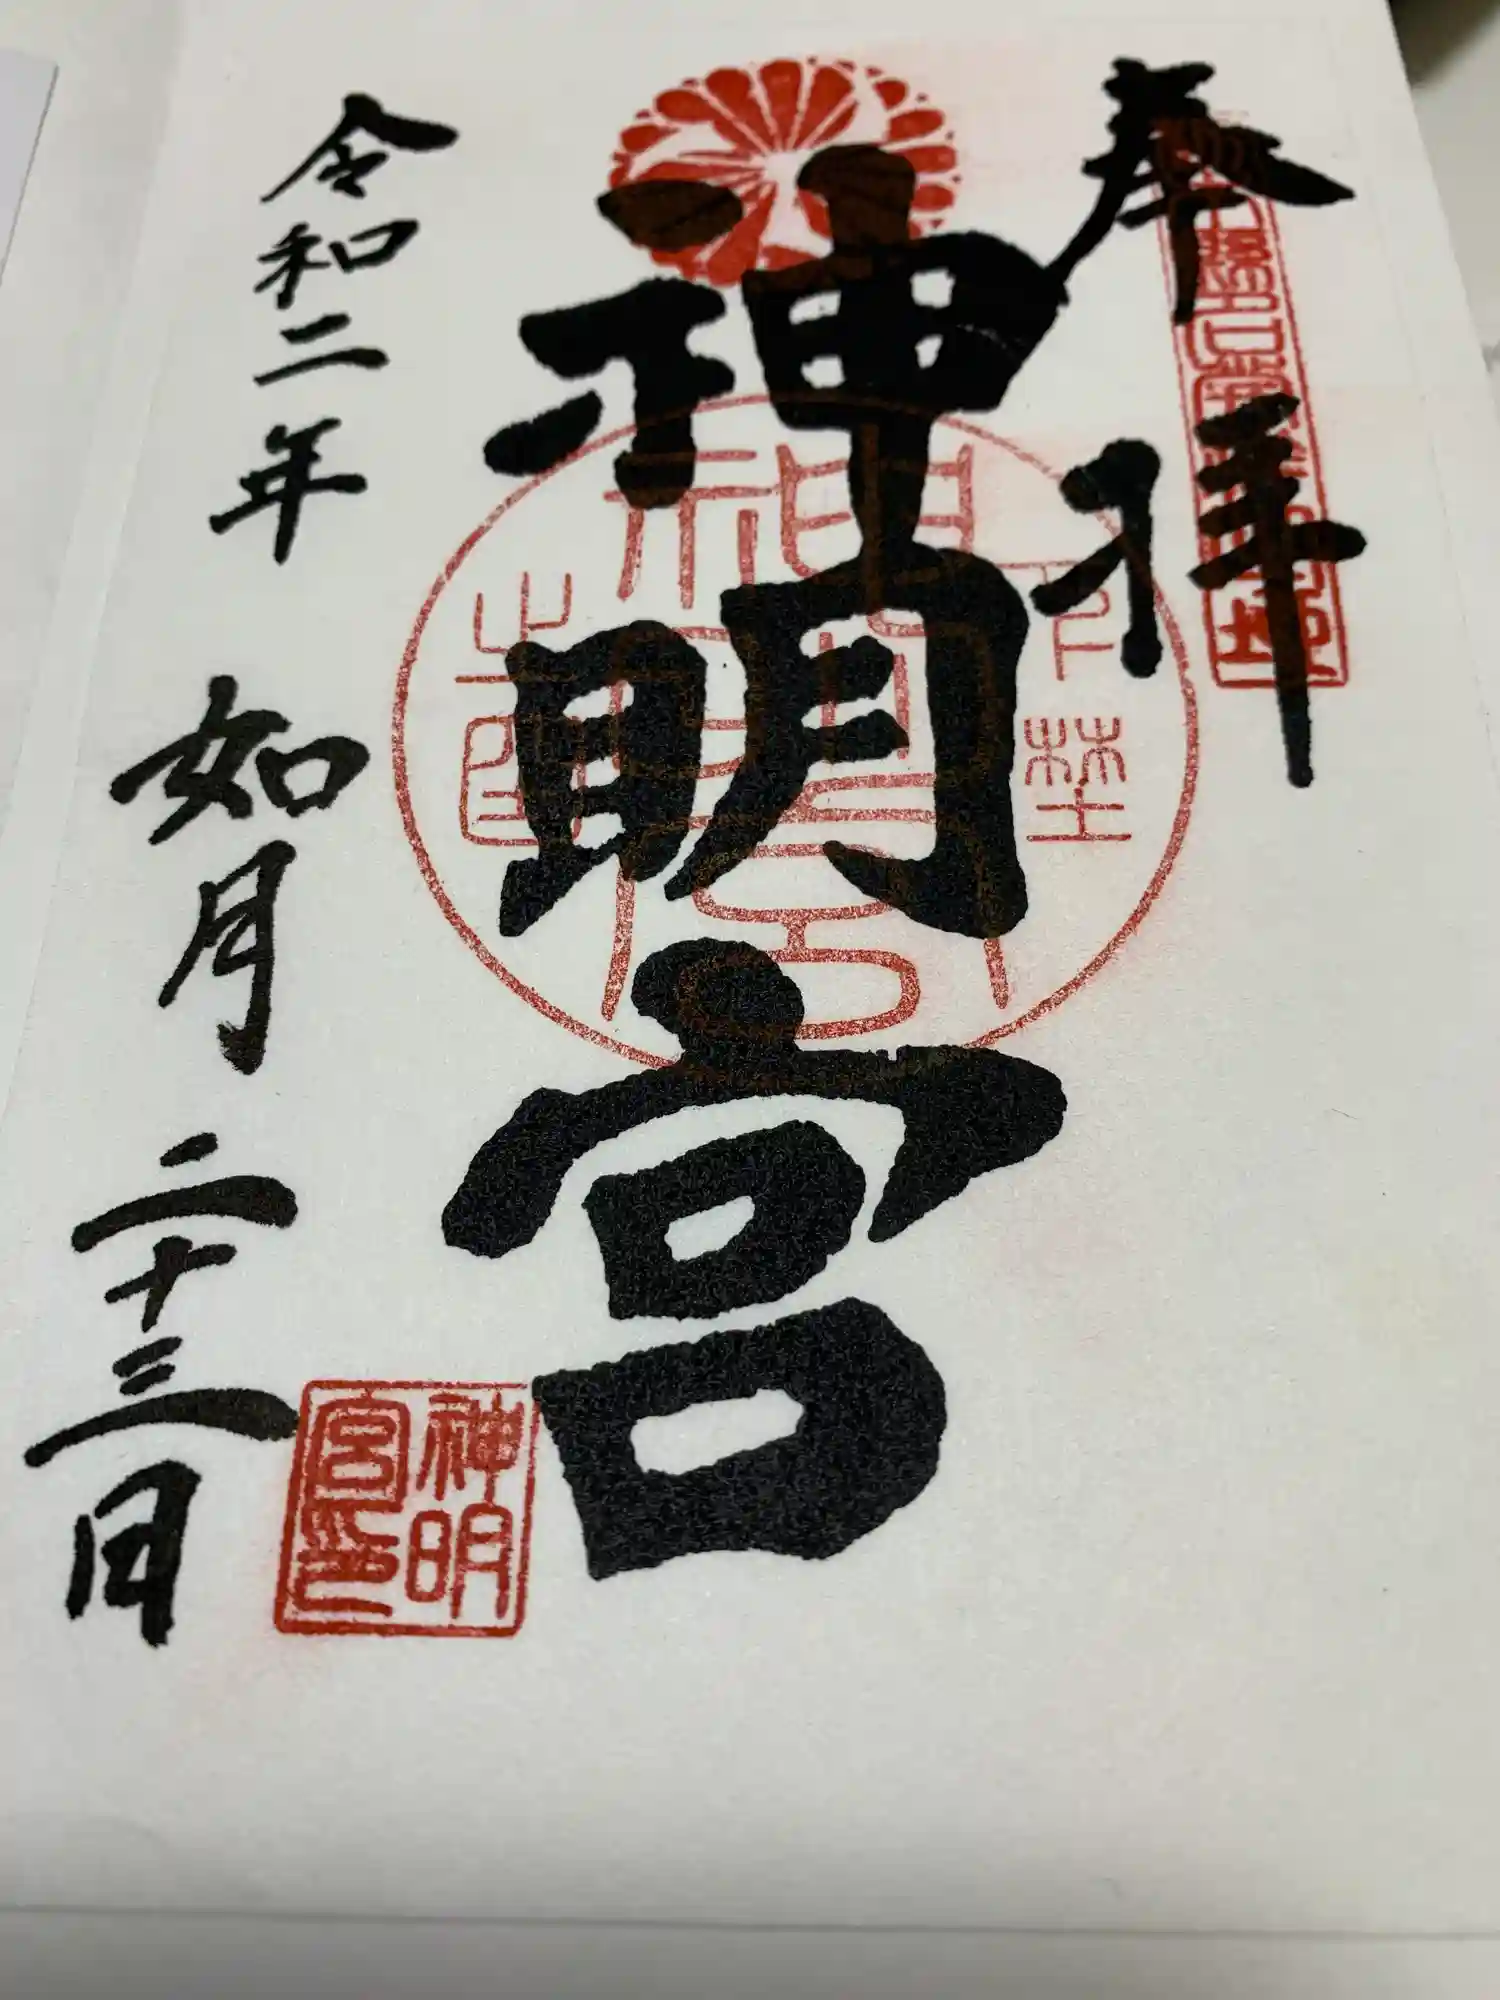 奉拝
神明宮
下野
神明宮
之印
令和二年 如月 二十三日
神明
宮印